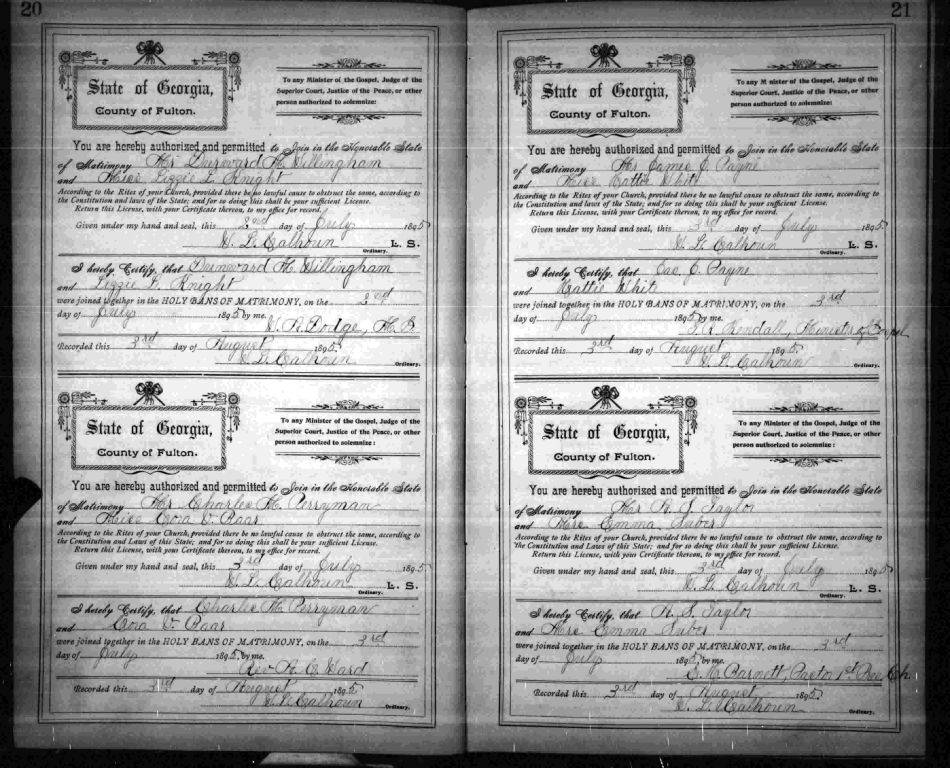 20
State of Georgia,
County of Fulton.
To any Minister of the Gospel, Judge of the
Superior Court, Justice of the Peace, or other
person authorized to solemnize:
You are hereby authorized and permitted to Join in the Honorable State
of Matrimony Mr Durward H. Dillingham
and Miss Lizzie L. Knight
According to the Rites of your Church, provided there be no lawful cause to obstruct the same, according to
the Constitution and laws of the State; and for so doing this shall be your sufficient License.
Return this License, with your Certificate thereon, to my office for record.
Given under my hand and seal, this 2nd day of July 1895
W. L. Calhoun L. S.
Ordinary.
I hereby Certify, that Durnward H. Dillingham
and Lizzie L. Knight
were joined together in the HOLY BANS OF MATRIMONY, on the 2nd
day of July 1895 by me.
Dodge, M. G.
Recorded this 3rd day of August 1895.
W. L. Calhoun
Ordinary.
State of Georgia,
County of Fulton.
To any Minister of the Gospel, Judge of the
Superior Court, Justice of the Peace, or other
person authorized to solemnize:
You are hereby authorized and permitted to Join in the Honorable State
of Matrimony Mr Charles H. Perryman
and Miss Cora V. Raar
According to the Rites of your Church, provided there be no lawful cause to obstruct the same, according to
the Constitution and Laws of this State; and for so doing this shall be your sufficient License.
Return this License, with your Certificate thereon, to my office for record.
Given under my hand and seal, this 3rd day of July 1895
W. L. Calhoun L. S.
Ordinary.
I hereby Certify, that Charles H. Perryman
and Cora V. Raar
were joined together in the HOLY BANS OF MATRIMONY, on the 3rd
day of July 1895, by me.
Rev. A. C. Ward
Recorded this 3rd day of August 1895
W. L. Calhoun
Ordinary.
21
State of Georgia,
County of Fulton.
To any Minister of the Gospel, Judge of the
Superior Court, Justice of the Peace, or other
person authorized to solemnize:
You are hereby authorized and permitted to Join in the Honorable State
of Matrimony Mr Jamie E. Payne
and Miss Mattie White
According to the Rites of your Church, provided there be no lawful cause to obstruct the same, according to
the Constitution and laws of the State; and for so doing this shall be your sufficient License.
Return this License, with your Certificate thereon, to my office for record.
Given under my hand and seal, this 3rd day of July 1895
W. L. Calhoun L. S.
Ordinary.
I hereby Certify, that Jas. E. Payne
and Mattie White
were joined together in the HOLY BANS OF MATRIMONY, on the 3rd
day of July 1895 by me.
T. R. Kendall, Minister of Gospel
Recorded this 3rd day of August 1895.
W. L. Calhoun
Ordinary.
State of Georgia,
County of Fulton.
To any Minister of the Gospel, Judge of the
Superior Court, Justice of the Peace, or other
person authorized to solemnize:
You are hereby authorized and permitted to Join in the Honorable State
of Matrimony Mr R. S. Taylor
and Mrs. Emma Suber
According to the Rites of your Church, provided there be no lawful cause to obstruct the same, according to
the Constitution and Laws of this State; and for so doing this shall be your sufficient License.
Return this License, with your Certificate thereon, to my office for record.
Given under my hand and seal, this 3rd day of July 1895
W. L. Calhoun L. S.
Ordinary.
I hereby Certify, that R. S. Taylor
and Mrs Emma Suber
were joined together in the HOLY BANS OF MATRIMONY, on the 3rd
day of July 1895, by me.
E. H. Barnett, Pastor 1st Pres. Ch.
Recorded this 3rd day of August 1895
W. L. Calhoun
Ordinary.